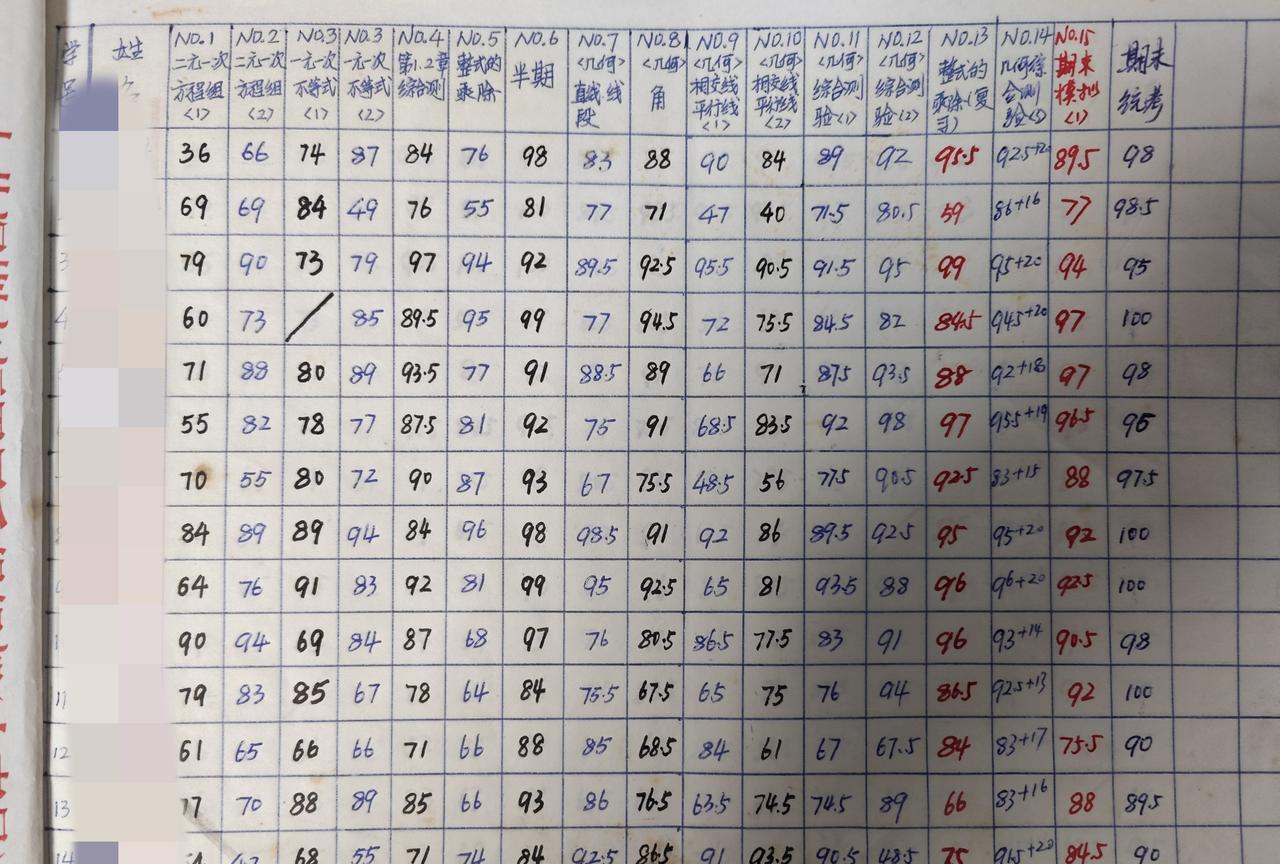 学 姓 NO.1 NO.2 NO.3 NO.3 NO.4 NO.5 NO.6 NO.7 NO.8 NO.9 NO.10 NO.11 NO.12 NO.13 NO.14 NO.15 期末
二元一次 二元一次 一元一次 一元一次 第1.2章 整式的 半期 <几何> <几何> <几何> <几何> <几何> <几何> 整式的 几何综 期末 统考
方程组 方程组 不等式 不等式 综合测 乘除 直线.线 角 相交线 相交线 综合测 综合测 乘除(复 合测 模拟
<1> <2> <1> <2> 段 平行线 平行线 验<1> 验<2> 习) 验<3> <1>
<1> <2>
36 66 74 87 84 76 98 83 88 90 84 89 92 95.5 92.5+20 89.5 98
69 69 84 49 76 55 81 77 71 47 40 71.5 80.5 59 86+16 77 98.5
3 79 90 73 79 97 94 92 89.5 92.5 95.5 90.5 91.5 95 99 95+20 94 95
4 60 73 / 85 89.5 95 99 77 94.5 72 75.5 84.5 82 84.5 94.5+20 97 100
71 88 80 89 93.5 77 91 88.5 89 66 71 87.5 93.5 88 92+18 97 98
55 82 78 77 87.5 81 92 75 91 68.5 83.5 92 98 97 95.5+19 96.5 95
70 55 80 72 90 87 93 67 75.5 48.5 56 77.5 90.5 92.5 83+15 88 97.5
84 89 89 94 84 96 98 98.5 91 92 86 89.5 92.5 95 95+20 92 100
64 76 91 83 92 81 99 95 92.5 65 81 93.5 88 96 96+20 92.5 100
90 94 69 84 87 68 97 76 80.5 86.5 77.5 83 91 96 93+14 90.5 98
11 79 83 85 67 78 64 84 75.5 67.5 65 75 76 94 86.5 92.5+13 92 100
12 61 65 66 66 71 66 88 85 68.5 84 61 67 67.5 84 83+17 75.5 90
13 77 70 88 89 85 66 93 86 76.5 63.5 74.5 74.5 89 66 83+16 88 89.5
14 68 55 71 74 84 92.5 86.5 91 93.5 90.5 48.5 75 84.5 90